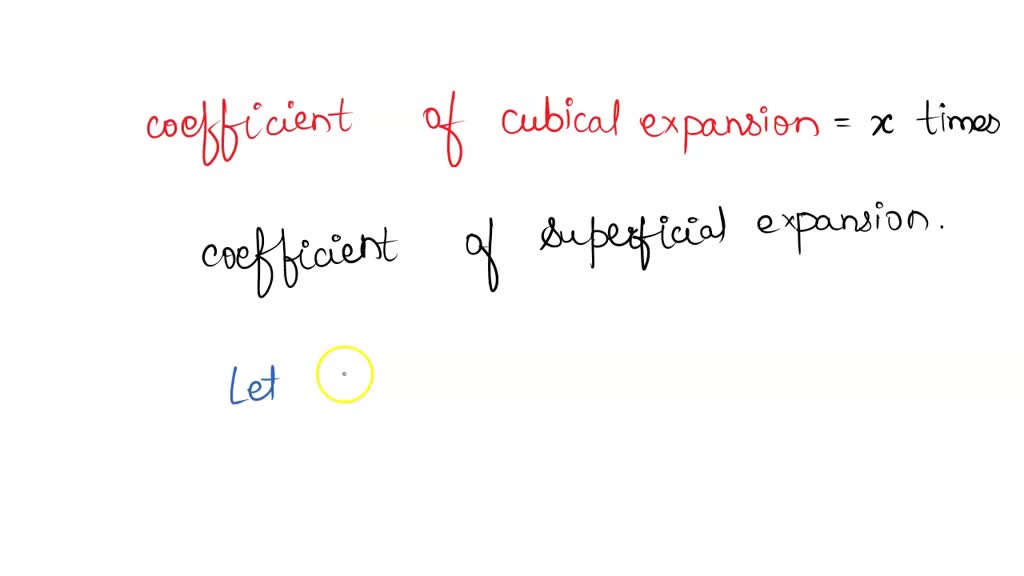 coefficient of cubical expansion = x times
coefficient of superficial expansion.
Let